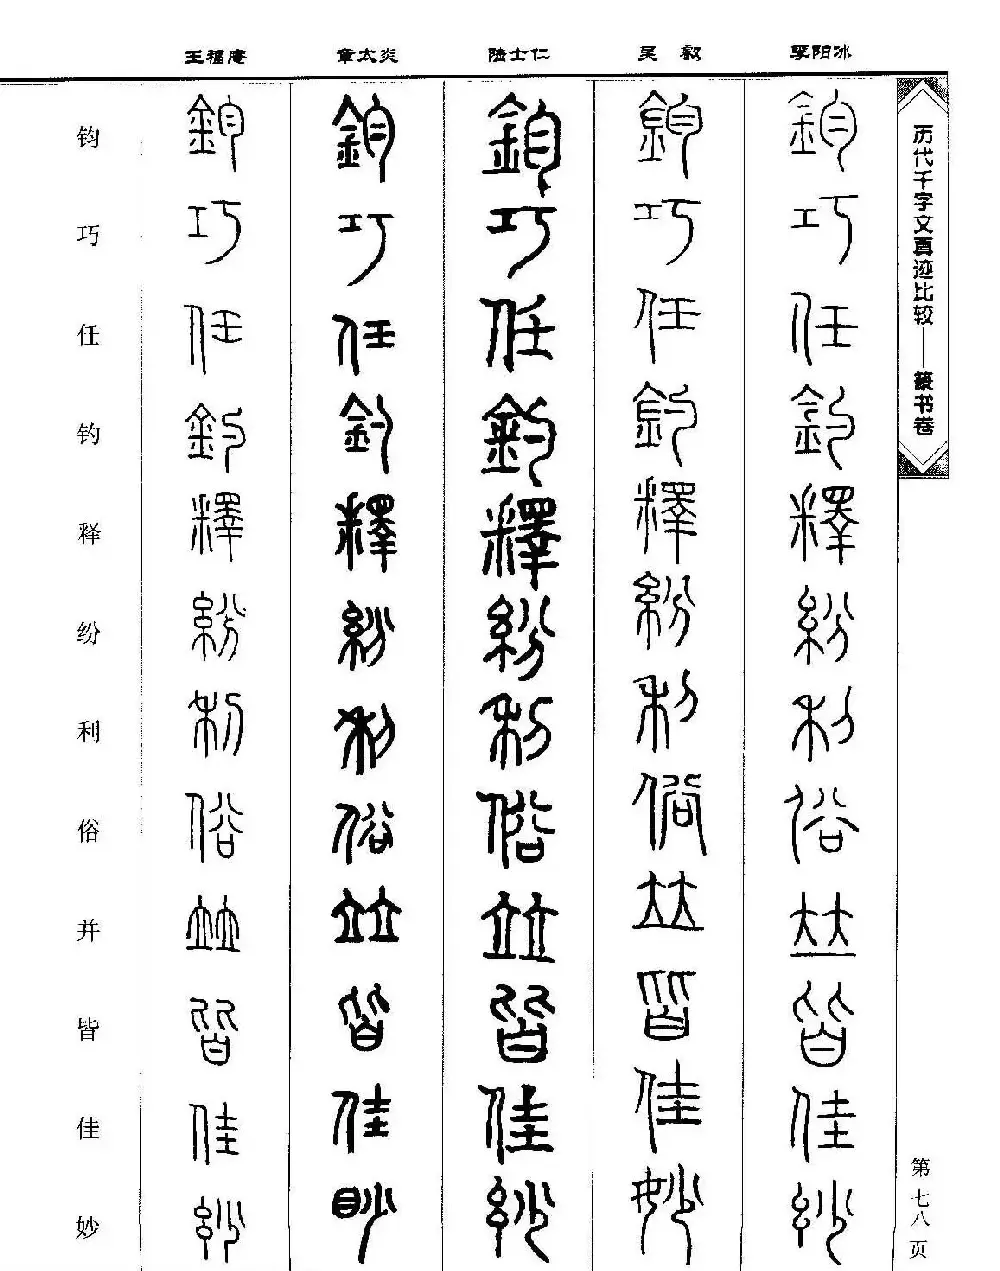 历代千字文真迹比较——篆书卷
第七八页
李阳冰
鈞巧任釣釋紛利俗竝皆佳紗
吴叡
鈞巧任釣釋紛利俗竝皆佳妙
陆士仁
鈞巧任釣釋紛利俗竝皆佳紗
章太炎
鈞巧任釣釋紛利俗竝皆佳眇
王福庵
鈞巧任釣釋紛利俗竝皆佳紗
钧巧任钓释纷利俗并皆佳妙